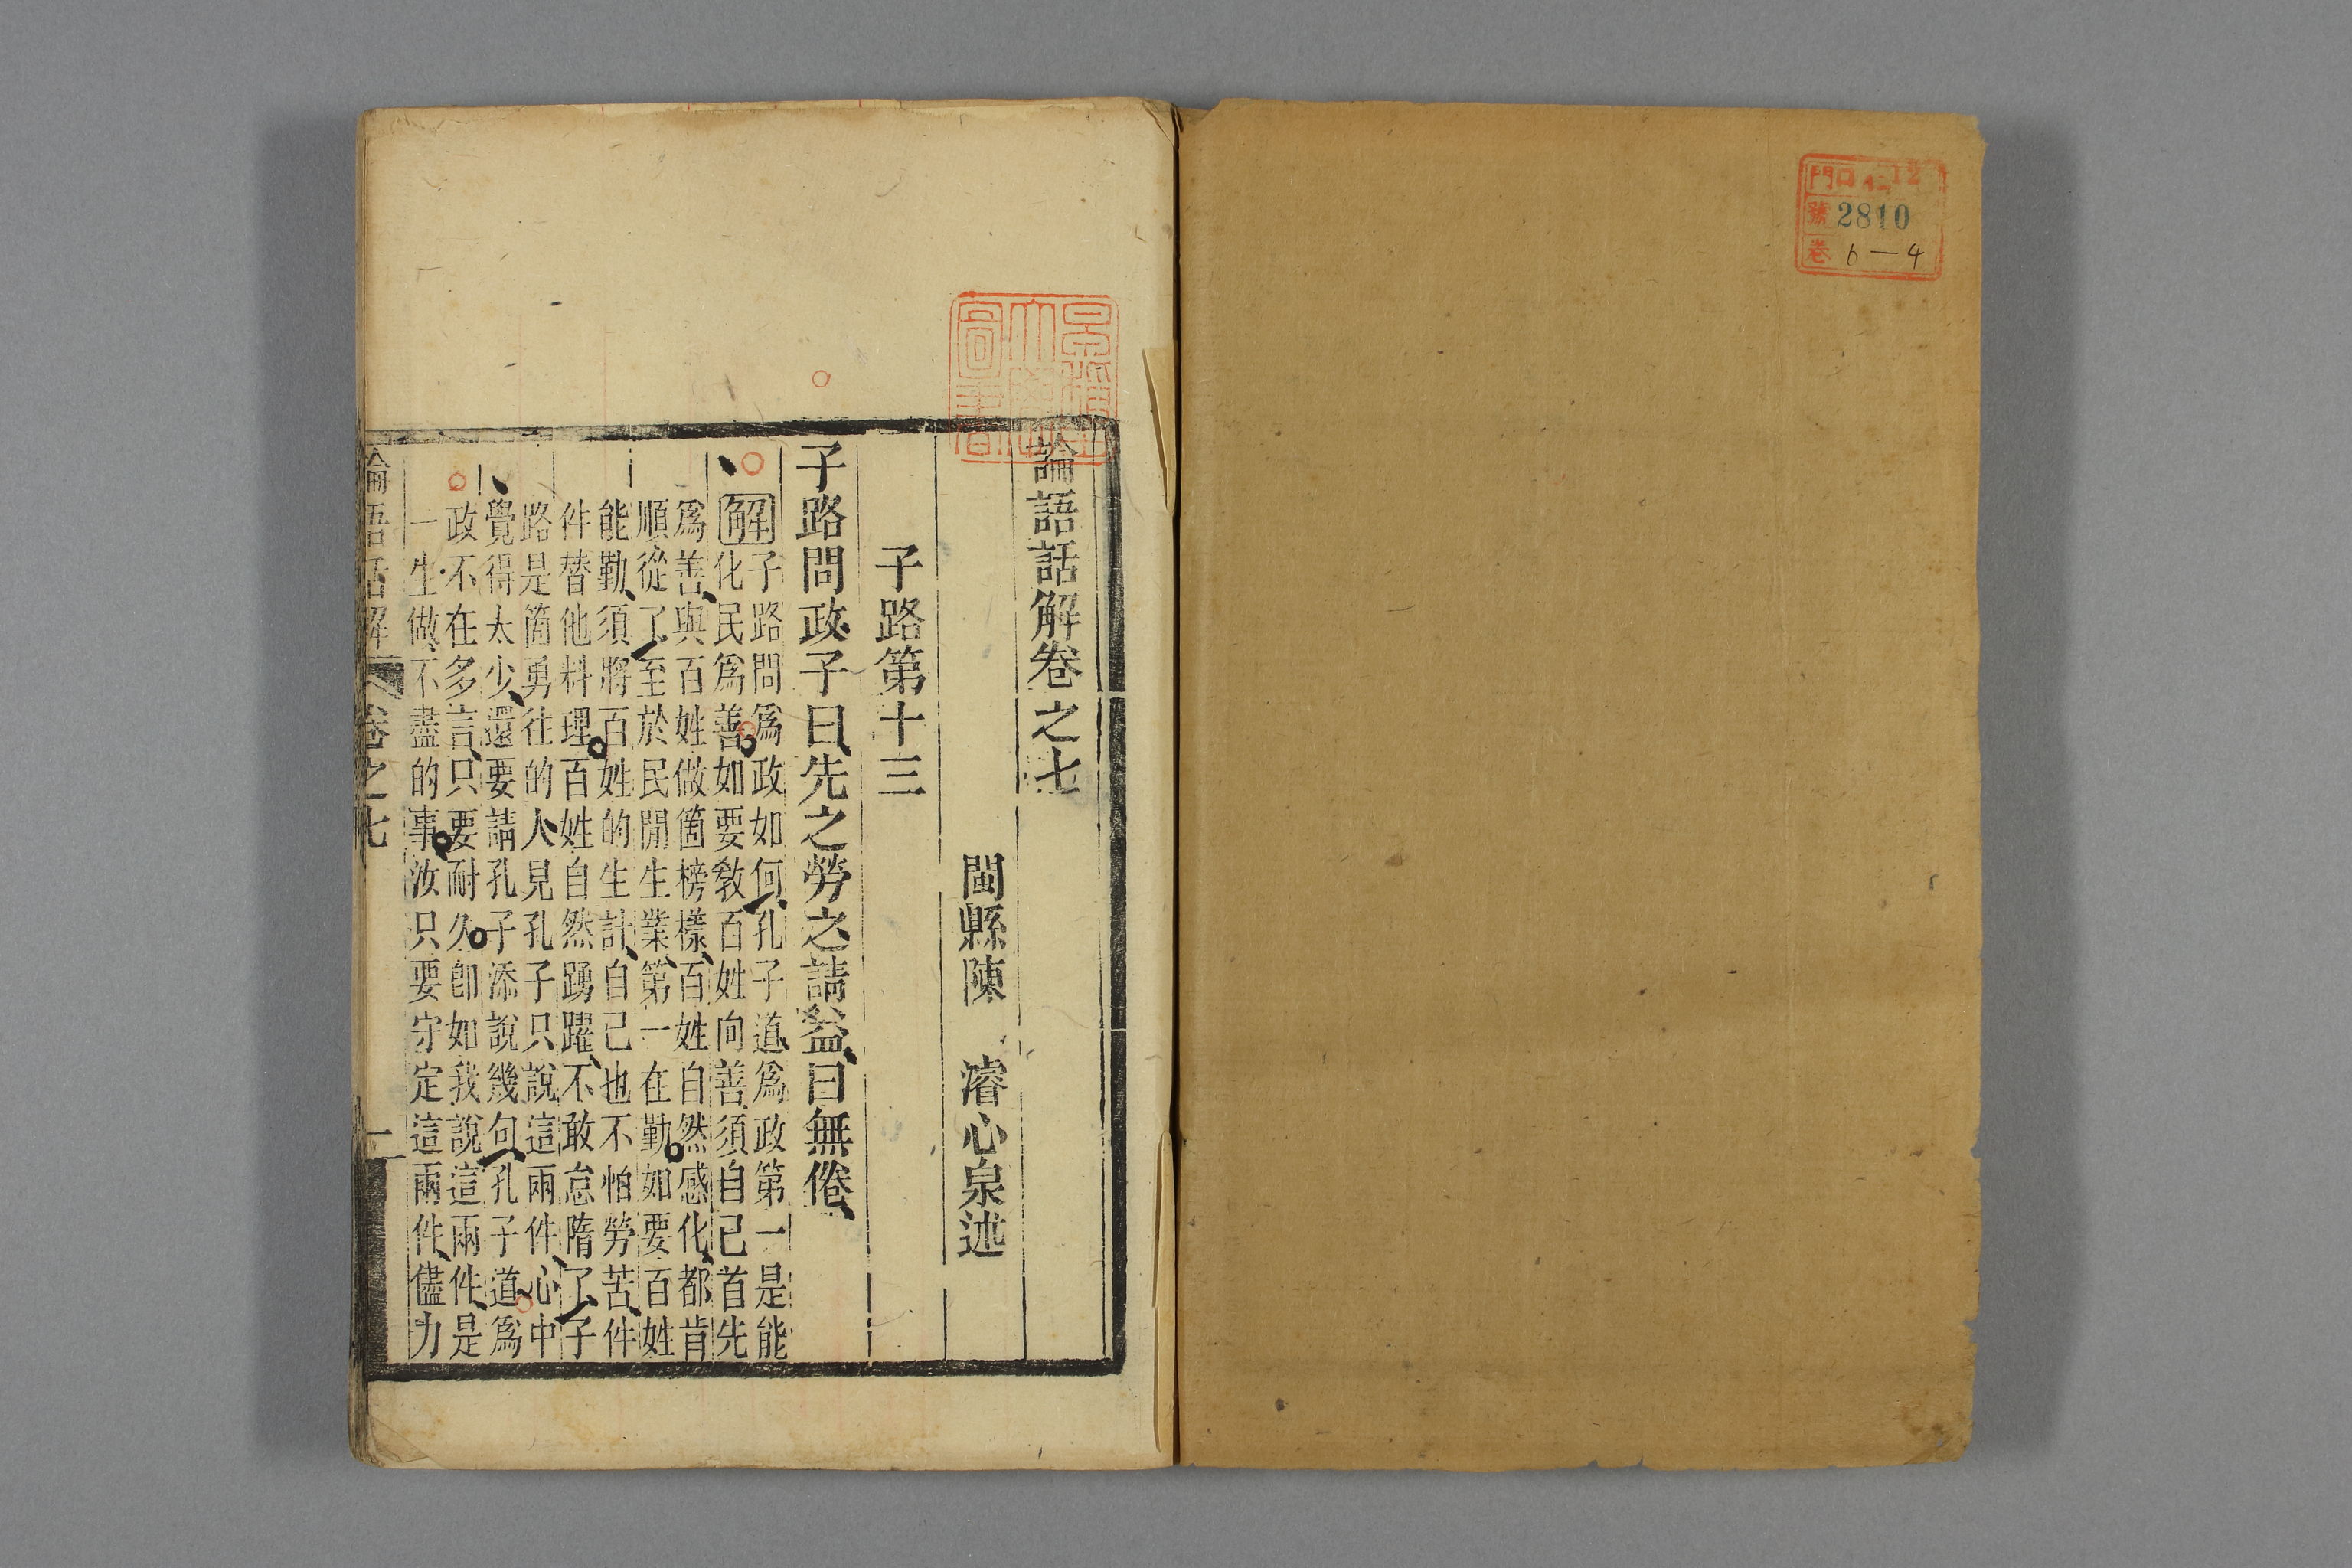 門 ロ 12
號 2810
卷 6-4
論語話解卷之七
閩縣陳 濬心泉述
子路第十三
子路問政子曰先之勞之請益曰無倦
解
子路問爲政如何孔子道爲政第一是能
化民爲善如要敎百姓向善須自已首先
爲善與百姓做箇榜樣百姓自然感化都肯
順從了至於民閒生業第一在勤如要百姓
能勤須將百姓的生計自已也不怕勞苦件
件替他料理百姓自然踴躍不敢怠隋了子
路是箇勇往的人見孔子只說這兩件心中
覺得太少還要請孔子添說幾句孔子道爲
政不在多言只要耐久卽如我說這兩件是
一生做不盡的事汝只要守定這兩件儘力
論語話解 卷之七 一